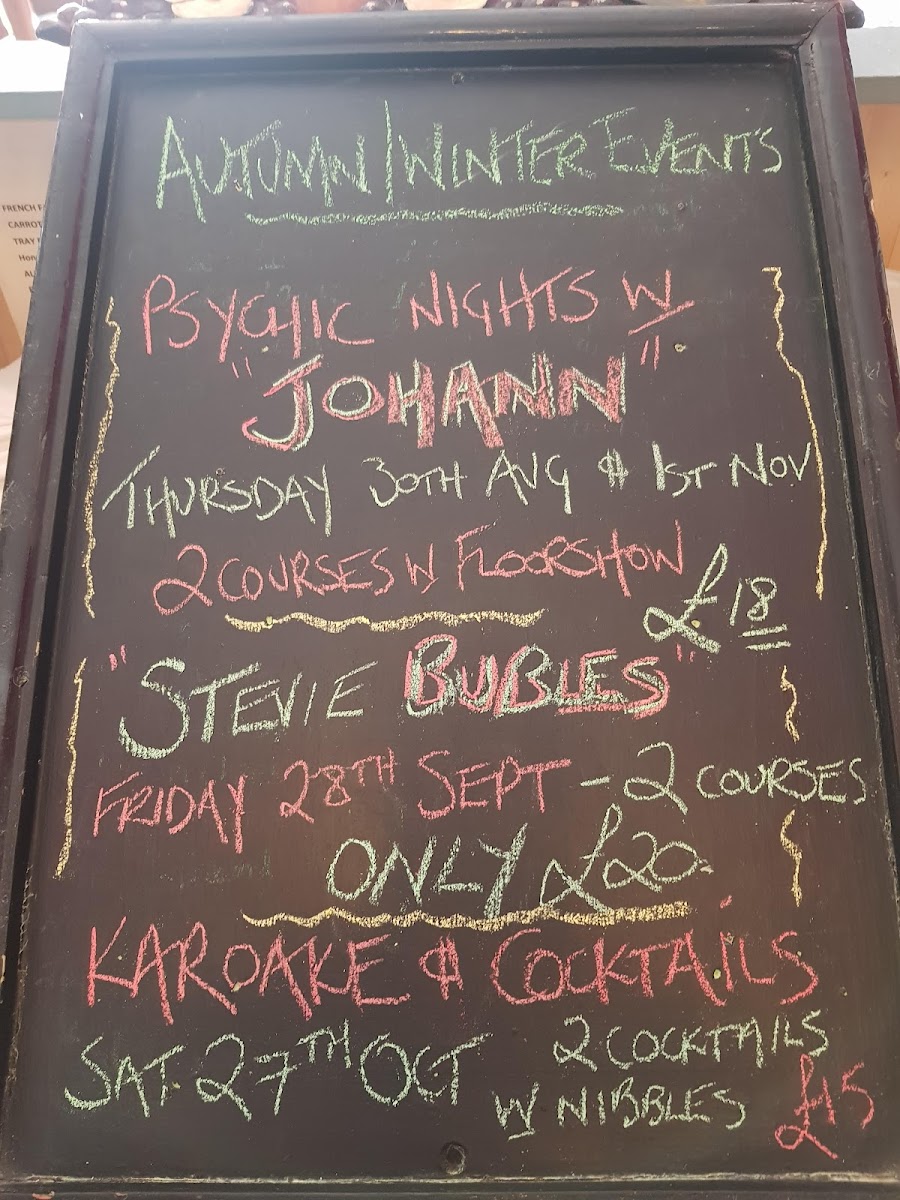 AUTUMN/WINTER EVENTS
PSYCHIC NIGHTS W
"JOHANN"
THURSDAY 30TH AUG & 1ST NOV
2 COURSES W FLOORSHOW
£18
"STEVIE BUBLES"
FRIDAY 28TH SEPT - 2 COURSES
ONLY £20
KAROAKE & COCKTAILS
SAT 27TH OCT
2 COCKTAILS
W NIBBLES £15
FRENCH
CARROT
TRAY